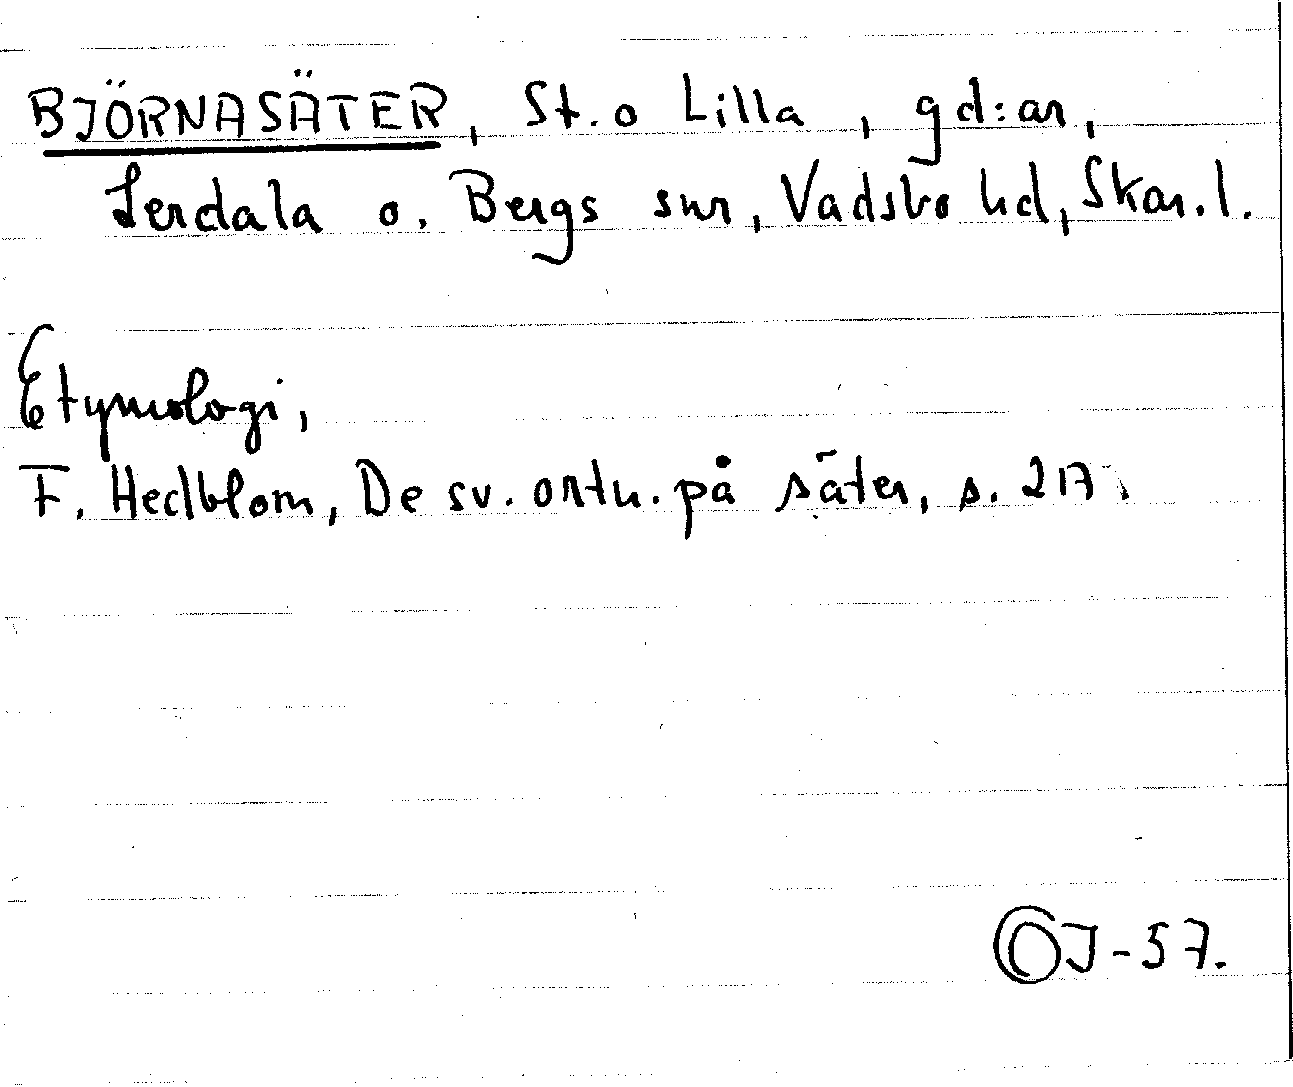 BJÖRNASÄTER, St. o Lilla, gd:ar,
Lerdala o. Bergs snr, Vadsbo hd, Skar. l.
Etymologi,
F. Hedblom, De sv. ortn. på säter, s. 217
OJ-57.